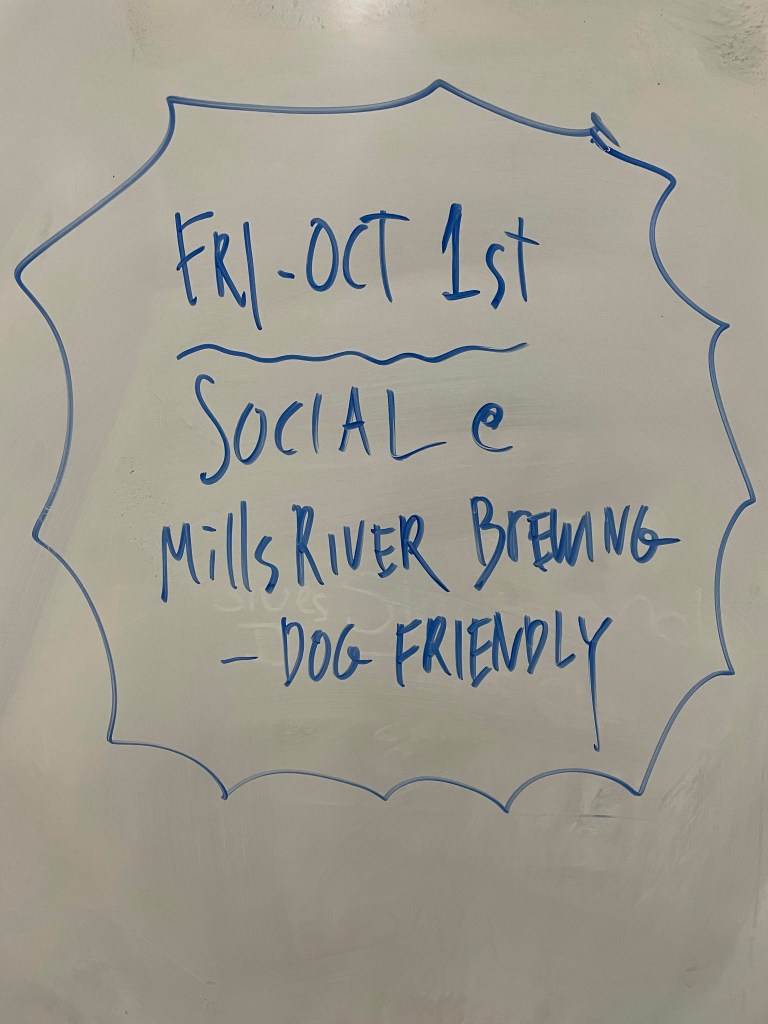 FRI - OCT 1st
SOCIAL @
Mills RIVER BREWING
- DOG FRIENDLY